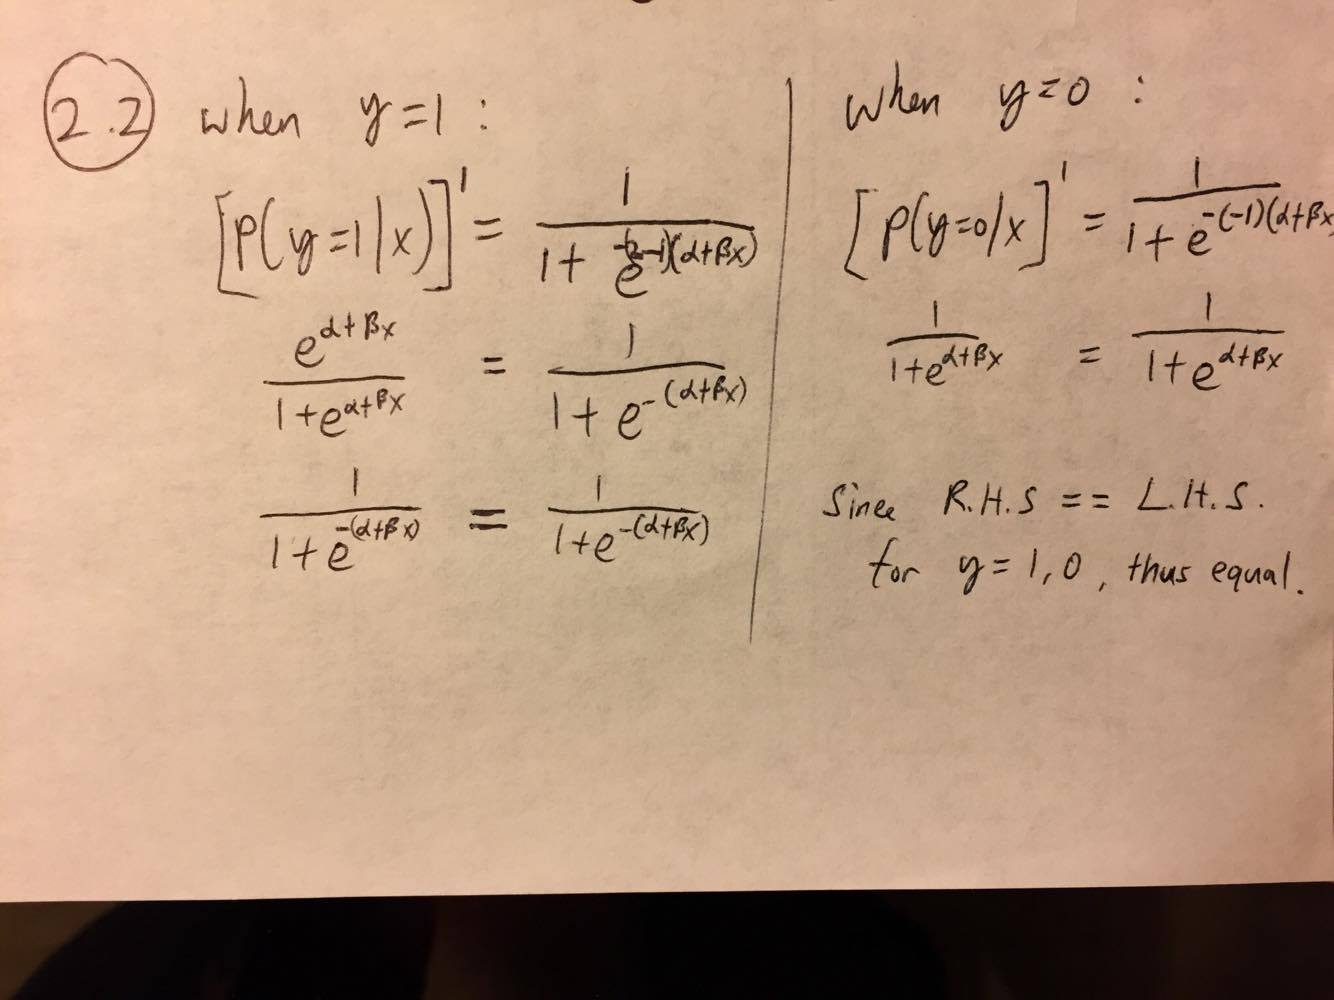 2.2 when y=1 :
[P(y=1|x)]' = 1/(1+e^{-(2-1)(α+βx)})
e^{α+βx}/(1+e^{α+βx}) = 1/(1+e^{-(α+βx)})
1/(1+e^{-(α+βx)}) = 1/(1+e^{-(α+βx)})
when y=0 :
[P(y=0|x]' = 1/(1+e^{-(-1)(α+βx})
1/(1+e^{α+βx}) = 1/(1+e^{α+βx})
Since R.H.S == L.H.S.
for y=1,0, thus equal.